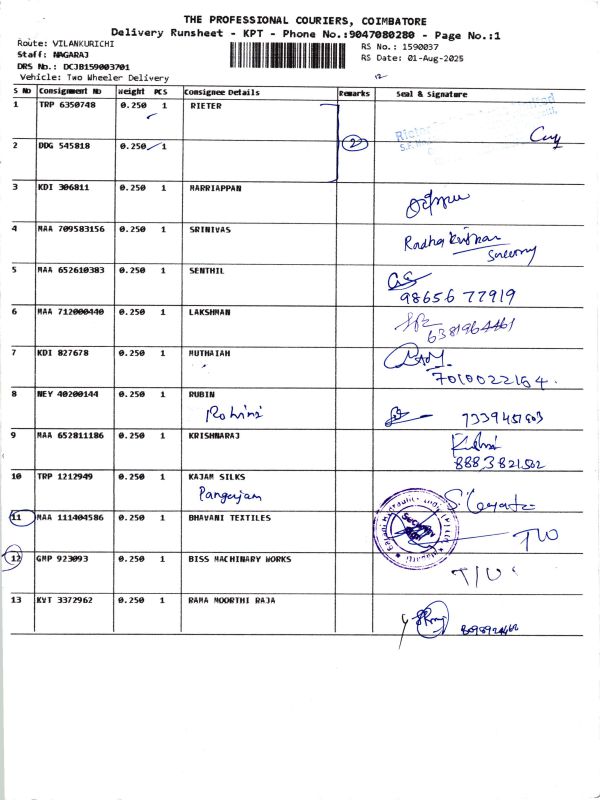 THE PROFESSIONAL COURIERS, COIMBATORE
Delivery Runsheet - KPT - Phone No.:9047080280 - Page No.:1
Route: VILANKURICHI
RS No.: 1590037
Staff: NAGARAJ
RS Date: 01-Aug-2025
DRS No.: DCJB159003701
Vehicle: Two Wheeler Delivery
12
S No Consignment No Weight PCS Consignee Details Remarks Seal & Signature
1 TRP 6350748 0.250 1 RIETER
2 DDG 545818 0.250 1 2
3 KDI 306811 0.250 1 MARRIAPPAN
4 MAA 709583156 0.250 1 SRINIVAS Radha Krishnan
5 MAA 652610383 0.250 1 SENTHIL
98656 77919
6 MAA 712000440 0.250 1 LAKSHMAN
6381964461
7 KDI 827678 0.250 1 MUTHAIAH
7010022164.
8 NEY 40200144 0.250 1 RUBIN
Rohini
9 MAA 652811186 0.250 1 KRISHNARAJ
10 TRP 1212949 0.250 1 KAJAM SILKS
Pangajam
11 MAA 111404586 0.250 1 BHAVANI TEXTILES
12 GMP 923093 0.250 1 BISS MACHINARY WORKS
13 KVT 3372962 0.250 1 RAMA MOORTHI RAJA